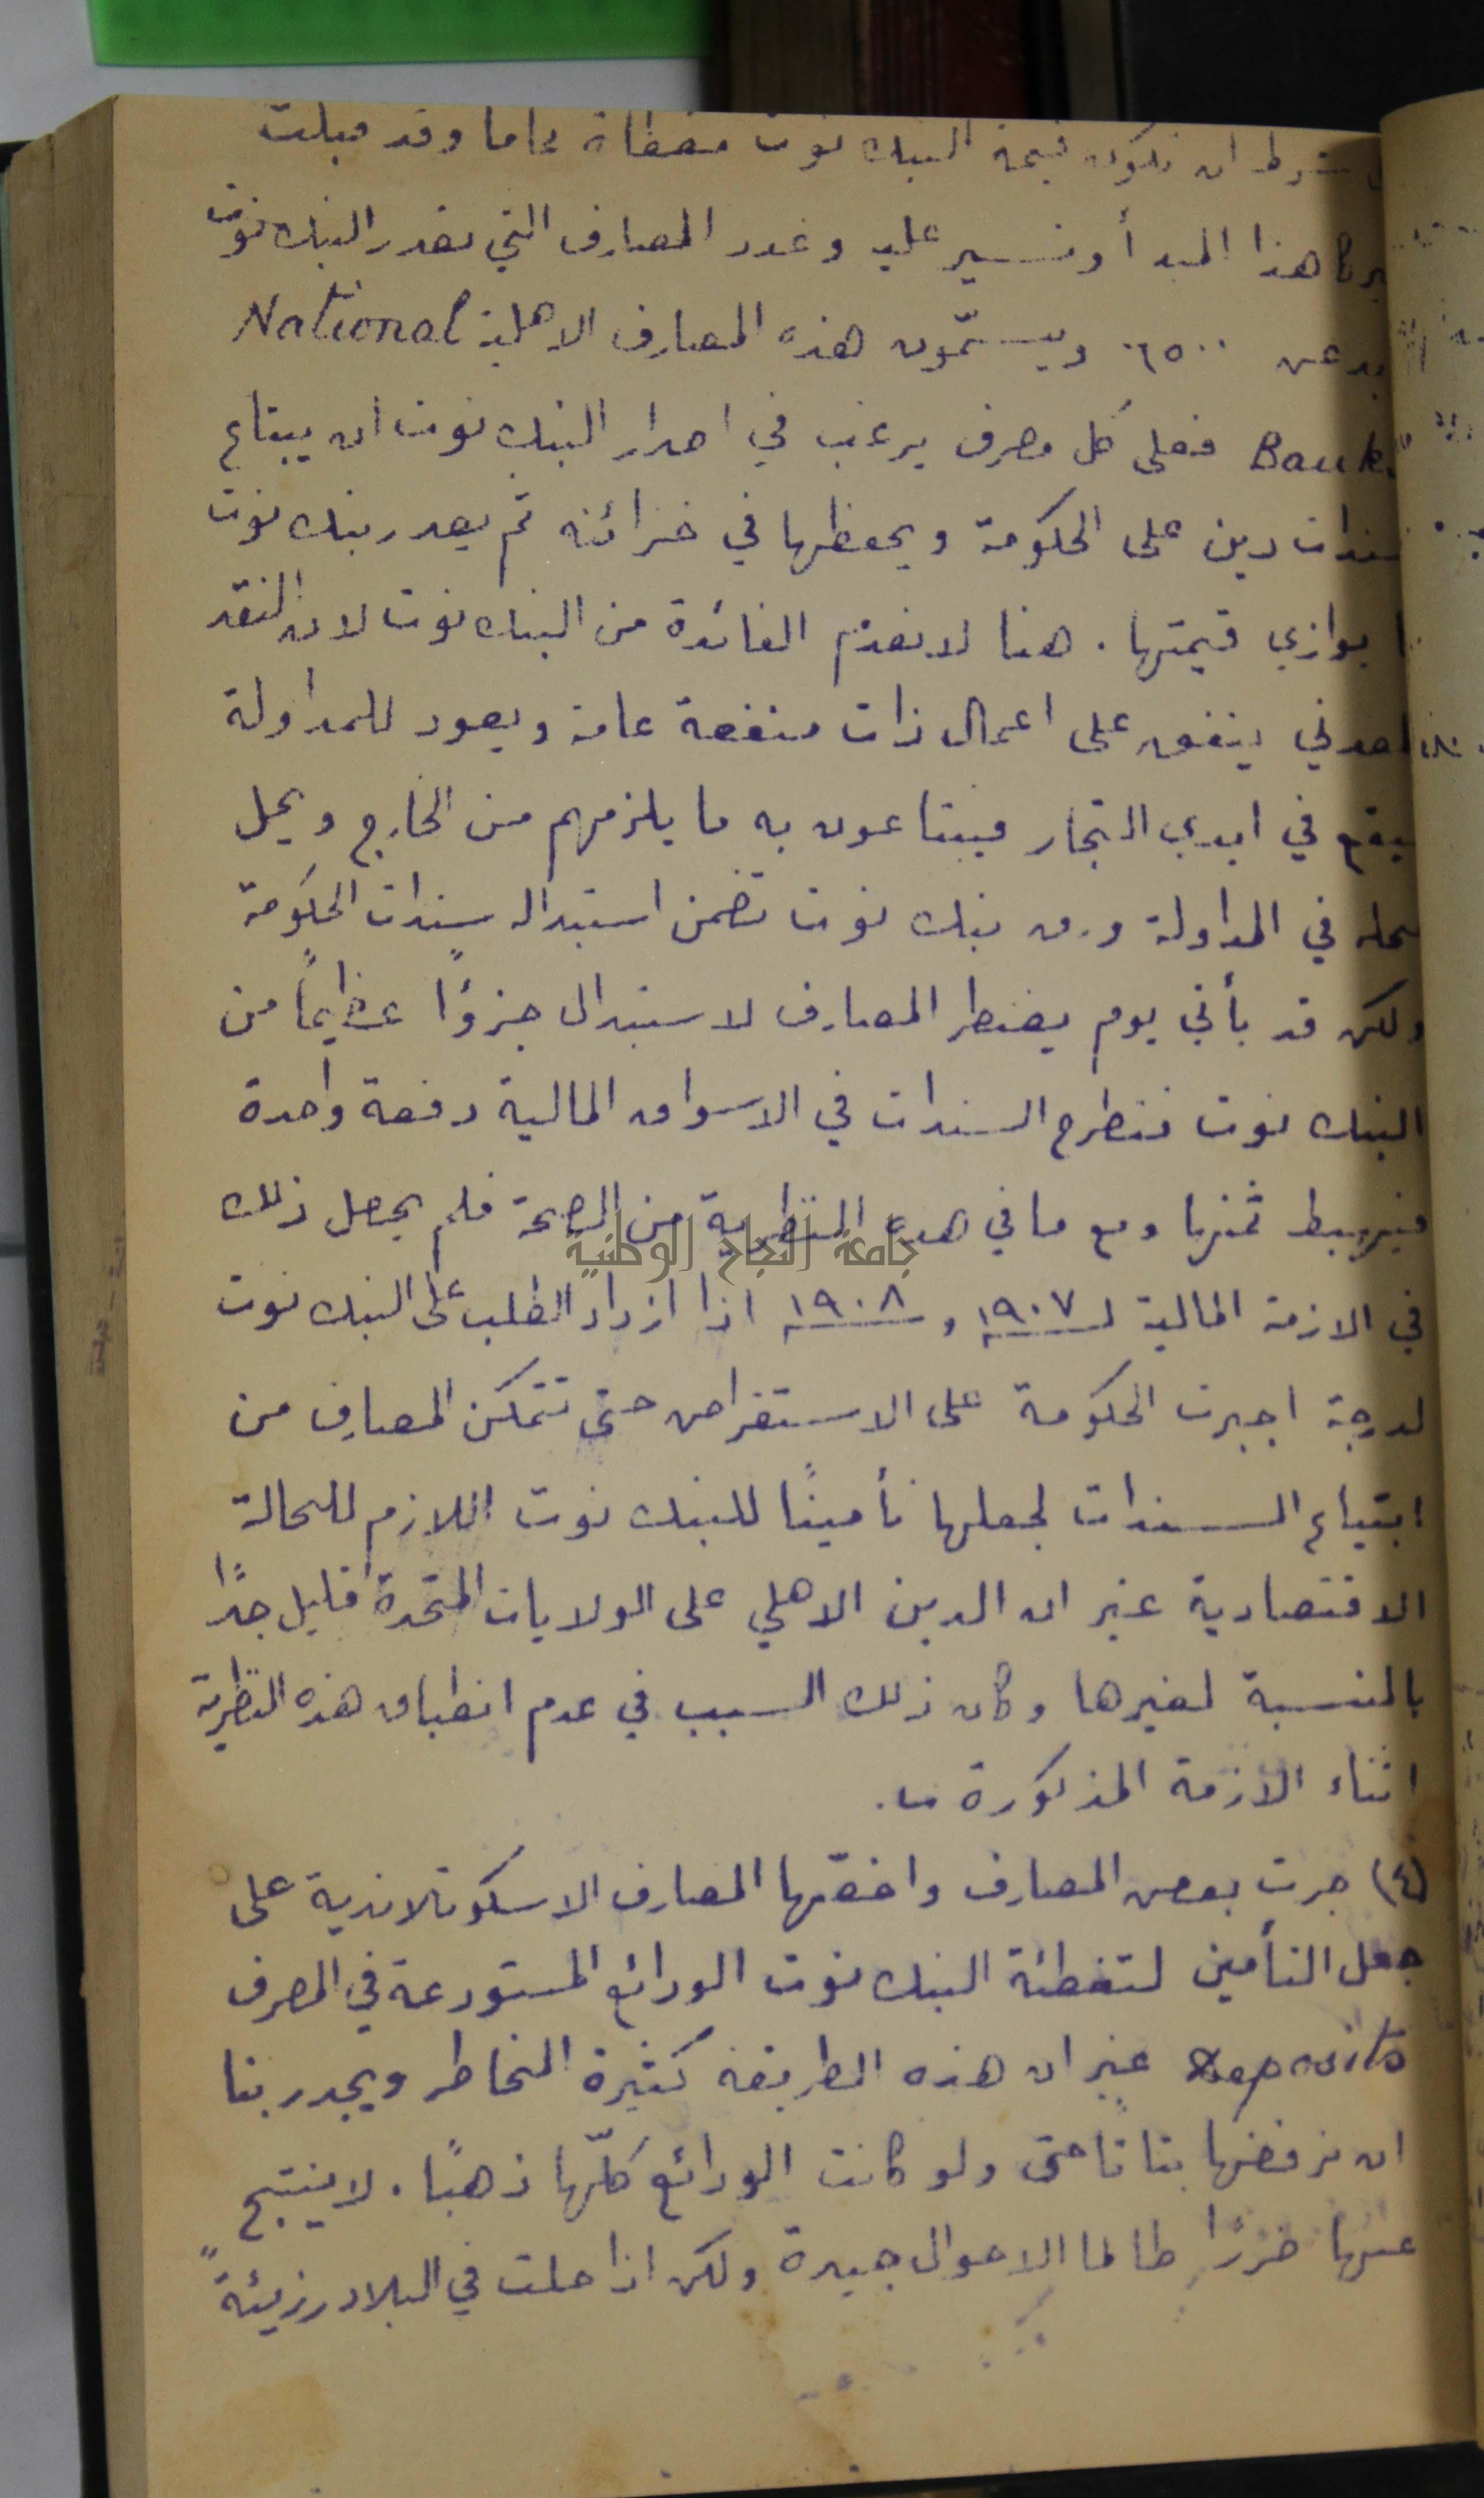 شرط ان تكون قيمة البنك نوت مغطاة تماما وقد قبلت
هذا المبدأ وتسير عليه وعدد المصارف التي تصدر البنك نوت
يزيد عن ٦٥٠٠ ويسمّون هذه المصارف الاهلية National
Banks فعلى كل مصرف يرغب في اصدار البنك نوت ان يبتاع
سندات دين على الحكومة ويحفظها في خزائنه ثم يصدر بنك نوت
يوازي قيمتها . هنا لا نعدم الفائدة من البنك نوت لان النقد
المعدني ينفق على اعمال ذات منفعة عامة ويعود للمداولة
فيقع في ايدي التجار فيبتاعون به ما يلزمهم من الخارج ويحل
محله في المداولة ورق بنك نوت تضمن استبداله سندات الحكومة
ولكن قد يأتي يوم يضطر المصارف لاستبدال جزؤًا عظيمًا من
البنك نوت فتطرح السندات في الاسواق المالية دفعة واحدة
فيهبط ثمنها ومع ما في هذه النظرية من الصحة فلم يحصل ذلك
جامعة النجاح الوطنية
في الازمة المالية لـ ١٩٠٧ و ١٩٠٨ اذا ازداد الطلب على البنك نوت
لدرجة اجبرت الحكومة على الاستقراض حتى تتمكن المصارف من
ابتياع السندات لجعلها تأمينًا للبنك نوت اللازم للحالة
الاقتصادية غير ان الدين الاهلي على الولايات المتحدة قليل جدًا
بالنسبة لغيرها وكان ذلك السبب في عدم انطباق هذه النظرية
اثناء الازمة المذكورة .
(٤) جرت بعض المصارف واخصّها المصارف الاسكوتلاندية على
جعل التأمين لتغطئة البنك نوت الودائع المستودعة في المصرف
Deposits غير ان هذه الطريقة كثيرة المخاطر ويجدر بنا
ان نرفضها بتاتًا حتى ولو كانت الودائع كلّها ذهبًا . لا ينتج
عنها ضررًا طالما الاحوال جيدة ولكن اذا حلت في البلاد رزيئةً